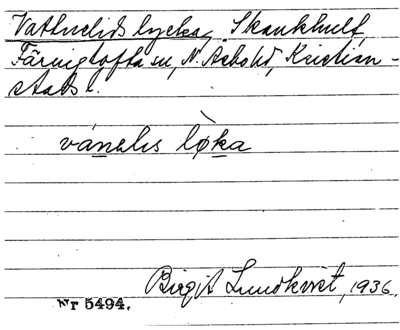 Vattnelids lycka, Skankhult,
Färingtofta sn, N. Åsbo hd, Kristian-
stads l.
vánəlıs lø̀ka
Birgit Lundkvist, 1936.
Nr 5494.